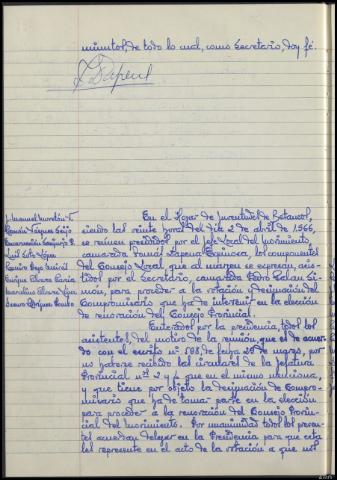 minutos, de todo lo cual, como Secretario, doy fé.
En el Hogar de Juventudes de Betanzos,
siendo las veinte horas del día 2 de abril de 1.966,
se reúnen presididos por el Jefe Local del Movimiento,
camarada Tomás Dapena Espinosa, los componentes
del Consejo Local que al margen se expresan, asis-
tidos por el Secretario, camarada Pedro Galán Si-
món, para proceder a la votación y designación del
Compromisario que ha de intervenir en la elección
de renovación del Consejo Provincial.
Enterados por la presidencia, todos los
asistentes, del motivo de la reunión, que es de acuer-
do con el escrito nº 508, de fecha 28 de marzo, por
haberse recibido las circulares de la Jefatura
Provincial nos 2 y 4 que en el mismo menciona,
y que tiene por objeto la designación de Compro-
misario que ha de tomar parte en la elección
para proceder a la renovación del Consejo Provin-
cial del Movimiento. Por unanimidad todos los presen-
tes acuerdan delegar en la Presidencia para que ésta
les represente en el acto de la votación a que nos
J. Manuel
Ramón Vázquez Seijo
Encarnación
Luis Soto López
Ramiro
Enrique Álvarez
Marcelino Álvarez